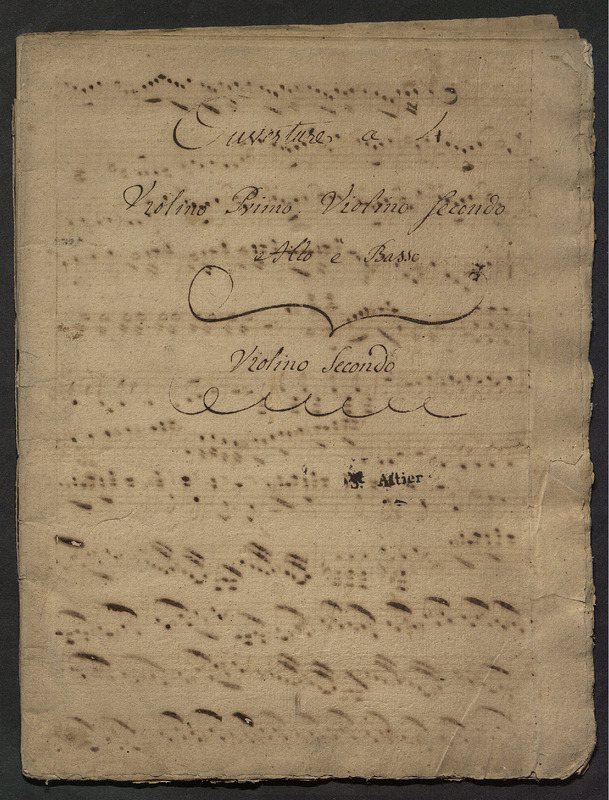 Ouverture a 4
Violino Primo Violino Secondo
e Alto è Basso
Violino Secondo
Altier